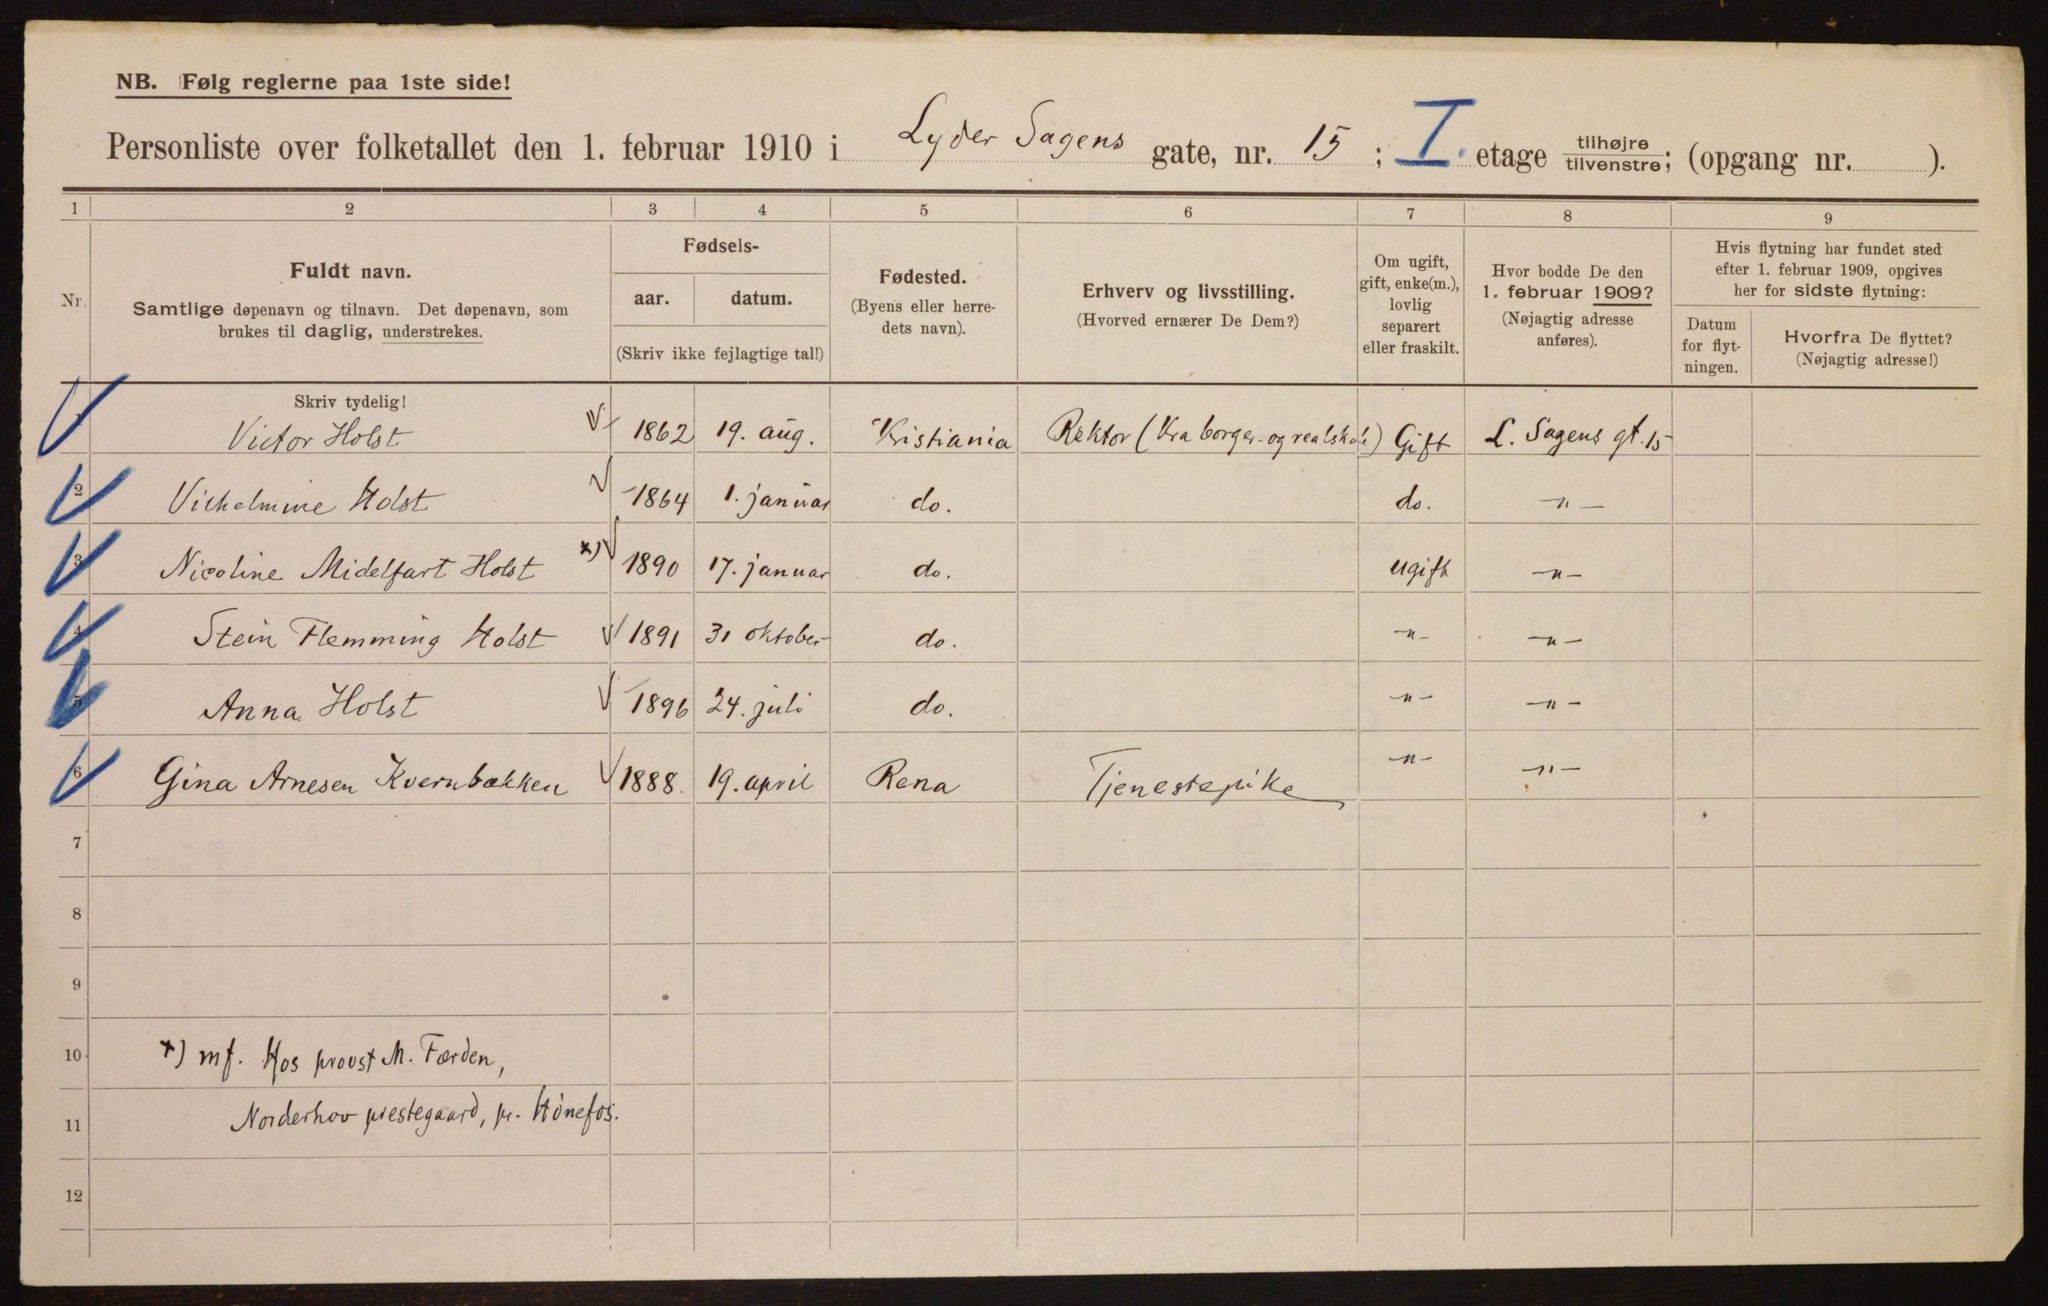 NB. Følg reglerne paa 1ste side!
Personliste over folketallet den 1. februar 1910 i Lyder Sagens gate, nr. 15; I. etage tilhøjre/tilvenstre; (opgang nr. ).
1 2 3 4 5 6 7 8 9
Nr.
Fuldt navn.
Samtlige døpenavn og tilnavn. Det døpenavn, som
brukes til daglig, understrekes.
Fødsels-
aar. datum.
(Skriv ikke fejlagtige tal!)
Fødested.
(Byens eller herre-
dets navn).
Erhverv og livsstilling.
(Hvorved ernærer De Dem?)
Om ugift,
gift, enke(m.),
lovlig
separert
eller fraskilt.
Hvor bodde De den
1. februar 1909?
(Nøjagtig adresse
anføres).
Hvis flytning har fundet sted
efter 1. februar 1909, opgives
her for sidste flytning:
Datum
for flyt-
ningen.
Hvorfra De flyttet?
(Nøjagtig adresse!)
Skriv tydelig!
1 Victor Holst 1862 19. aug. Kristiania Rektor (Kra borger- og realskole) Gift L. Sagens gt. 15
2 Vilhelmine Holst 1864 1. januar do. do. -"-
3 Nicoline Midelfart Holst x) 1890 17. januar do. ugift -"-
4 Stein Flemming Holst 1891 31 oktober do. -"- -"-
5 Anna Holst 1896 24. juli do. -"- -"-
6 Gina Arnesen Kvernbækken 1888. 19. april Rena Tjenestepike -"- -"-
7
8
9
10 x) mf. Hos provst M. Færden,
11 Norderhov prestegaard, pr. Hønefos.
12